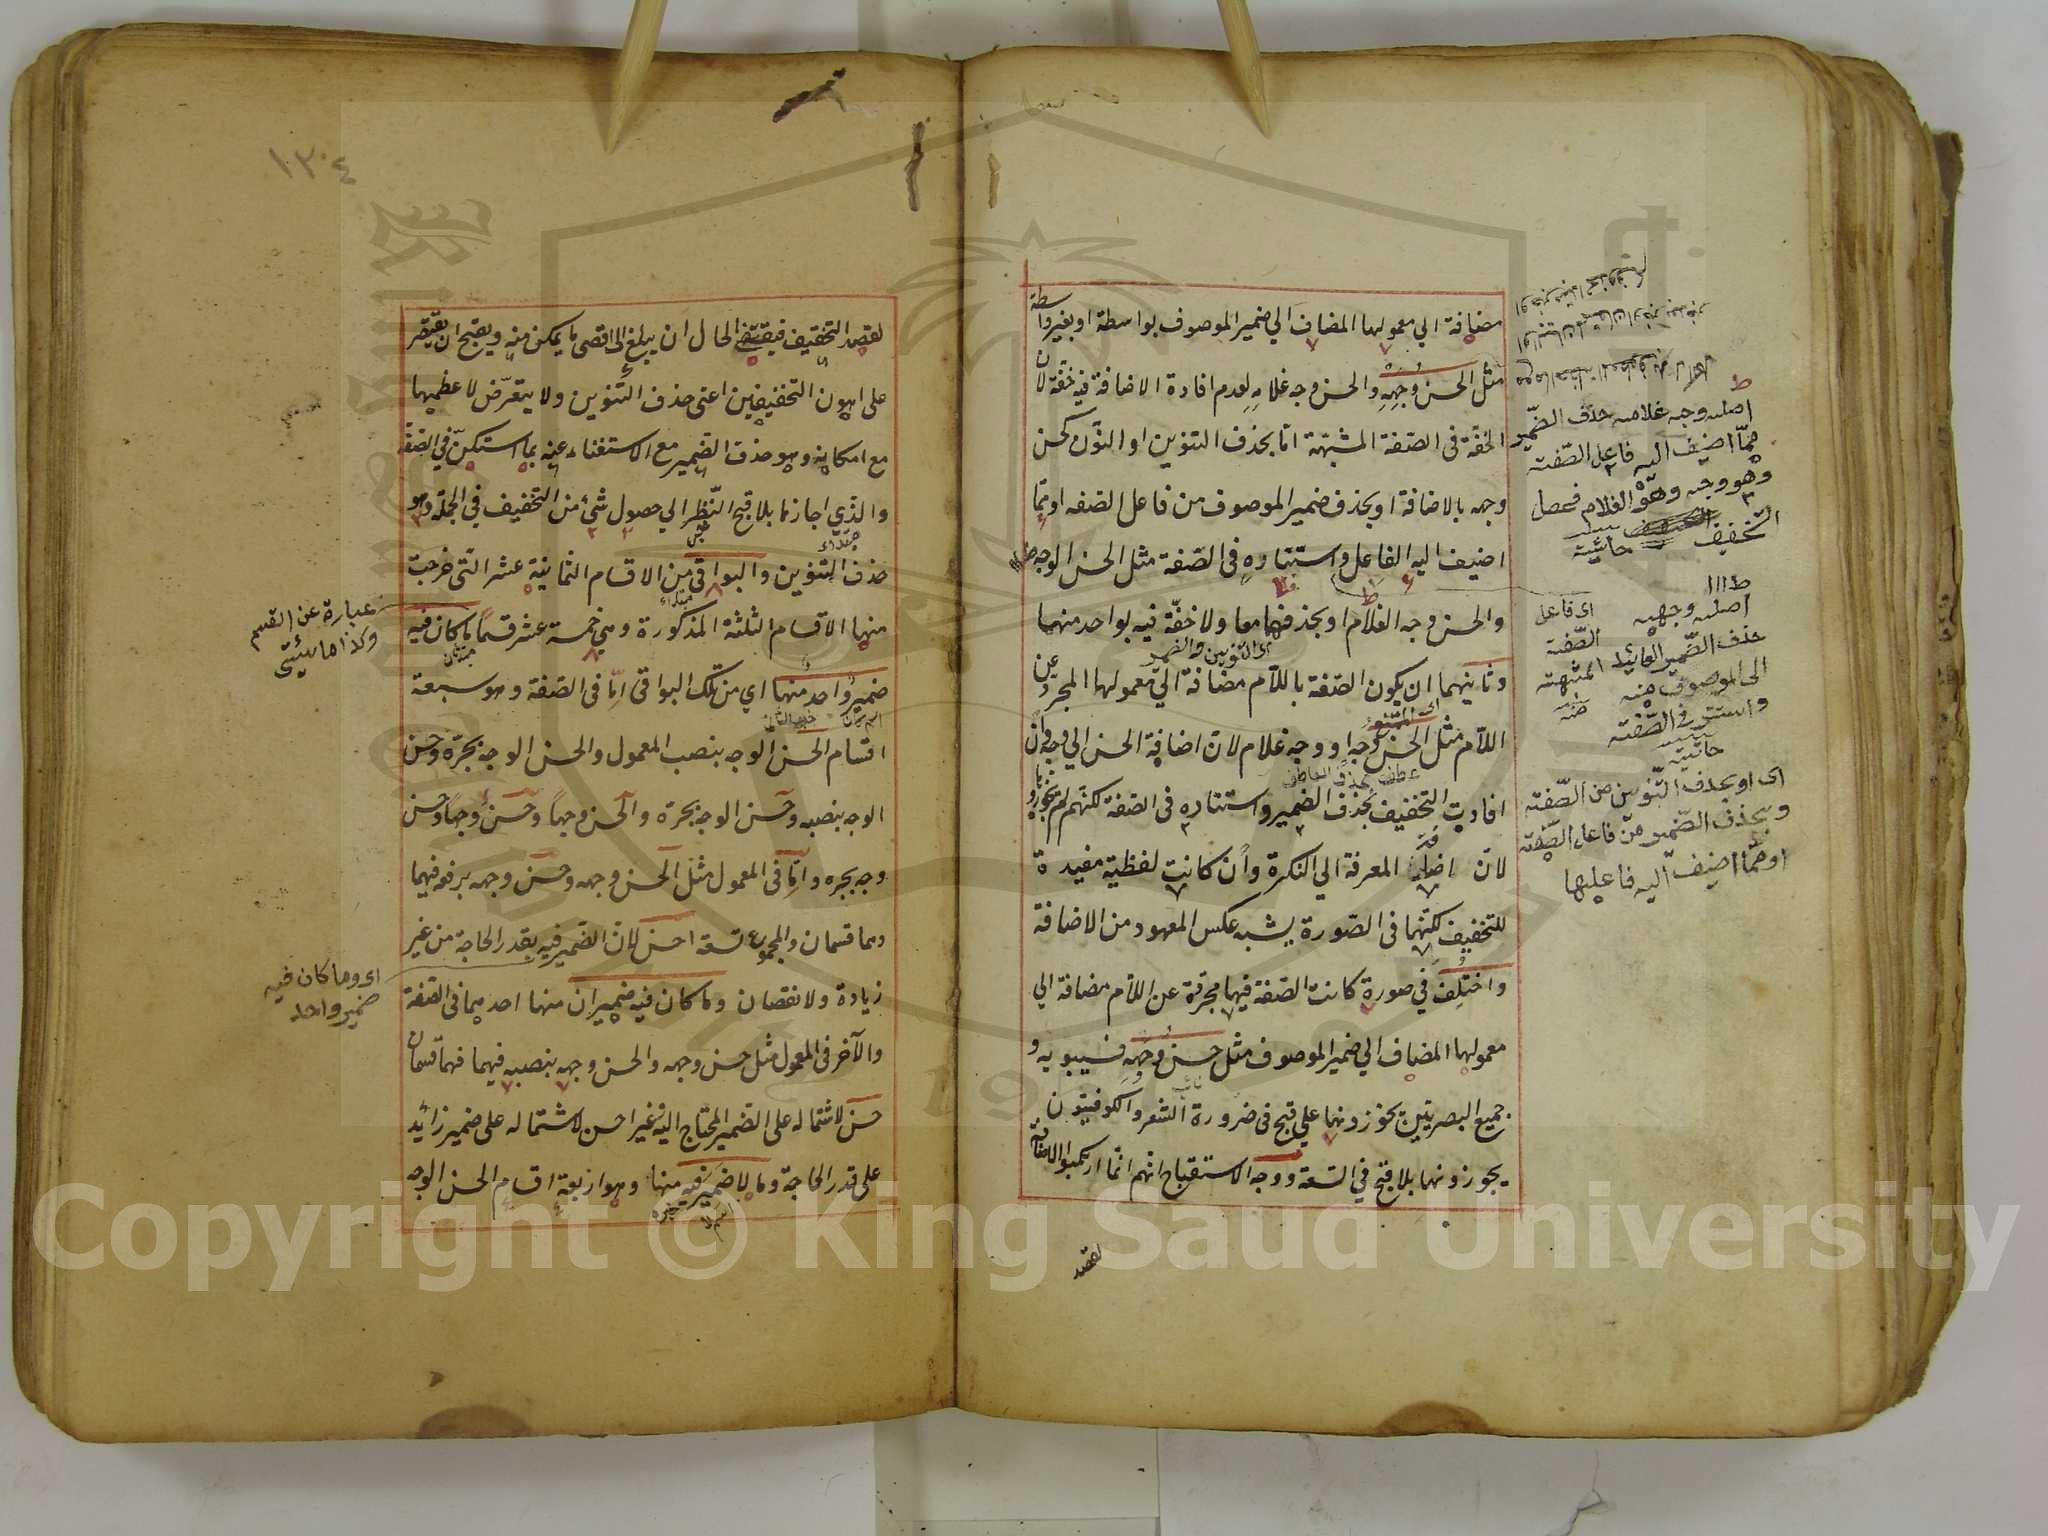 مضافة الي معمولها المضاف الي ضمير الموصوف بواسطة او بغير واسطة
مثل الحسن وجهه والحسن وجه غلامه لعدم افادة الاضافة فيه خفة لان
الخفة في الصّفة المشبّهة انما بحذف التنوين او النون كحسن
وجهه بالاضافة او بحذف ضمير الموصوف من فاعل الصفه او مما
اضيف اليه الفاعل واستتاره في الصّفة مثل الحسن الوجه
والحسن وجه الغلام او بحذفهما معا ولا خفّة فيه بواحد منهما
وثانيهما ان يكون الصّفة باللّام مضافة الي معمولها المجرد عن
اللّام مثل الحسن وجه او وجه غلام لان اضافة الحسن الي وجه وان
افادت التخفيف بحذف الضمير واستتاره في الصّفة لكنهم لم يجوزوا
لان اضافة المعرفة الي النكرة وان كانت لفظية مفيدة
للتخفيف لكنّها في الصّورة يشبه عكس المعهود من الاضافة
واختلف في صورة كانت الصّفة فيها مجردة عن اللّام مضافة الي
معمولها المضاف الي ضمير الموصوف مثل حسن وجهه فسيبويه و
جميع البصريين يجوزونها علي قبح في ضرورة الشعر والكوفيون
يجوزونها بلا قبح في السّعة ووجه الاستقباح انهم انما ارتكبوا الاضافة
لقصد
اصله وجه غلامه حذف الضّمير
ممّا اضيف اليه فاعل الصّفة
وهو وجه وهو الغلام فحصل
التخفيف
حاشية
اصله وجهه
حذف الضّمير العائد
الى الموصوف منه
واستتر في الصّفة
حاشية
اى فاعل
الصّفة
المشبهة
منه
اى او بحذف التّنوين من الصّفة
وبحذف الضّمير من فاعل الصّفة
او ممّا اضيف اليه فاعلها
اى التنوين والضمير
عطف بحذف العاطف
١٣٠٤
لقصد التخفيف فيقتضي الحال ان يبلغ الى اقصى ما يمكن منه ويقبح ان يقتصر
على اهون التخفيفين اعنى حذف التنوين ولا يتعرّض لاعظمهما
مع امكانه وهو حذف الضمير مع الاستغناء عنه بما استكنّ في الصّفة
والذي اجازها بلا قبح النّظر الي حصول شئ من التخفيف في الجملة وهو
حذف التنوين والبواقي من الاقسام الثمانية عشر التى خرجت
منها الاقسام الثلثة المذكورة وهي خمسة عشر قسماً ما كان فيه
ضمير واحد منها اي من تلك البواقى امّا في الصّفة وهو سبعة
اقسام الحسن الوجه بنصب المعمول والحسن الوجه بجرّه وحسن
الوجه بنصبه وحسن الوجه بجره والحسن وجهاً وحسن وجهاً وحسن
وجه بجره وامّا في المعمول مثل الحسن وجهه وحسن وجهه برفعه فيهما
وهما قسمان والمجموع تسعة احسن لان الضمير فيه بقدر الحاجة من غير
زيادة ولا نقصان وما كان فيه ضميران منها احدهما في الصّفة
والآخر في المعمول مثل حسن وجهه والحسن وجهه بنصبه فيهما فهما قسمان
حسن لاشتماله على الضمير المحتاج اليه غير احسن لاشتماله على ضمير زائد
على قدر الحاجة وما لا ضمير فيه منها وهو اربعة اقسام الحسن الوجه
عبارة عن القسم
وكذا ما سيئتى
اى وما كان فيه
ضمير واحد
Copyright © King Saud University